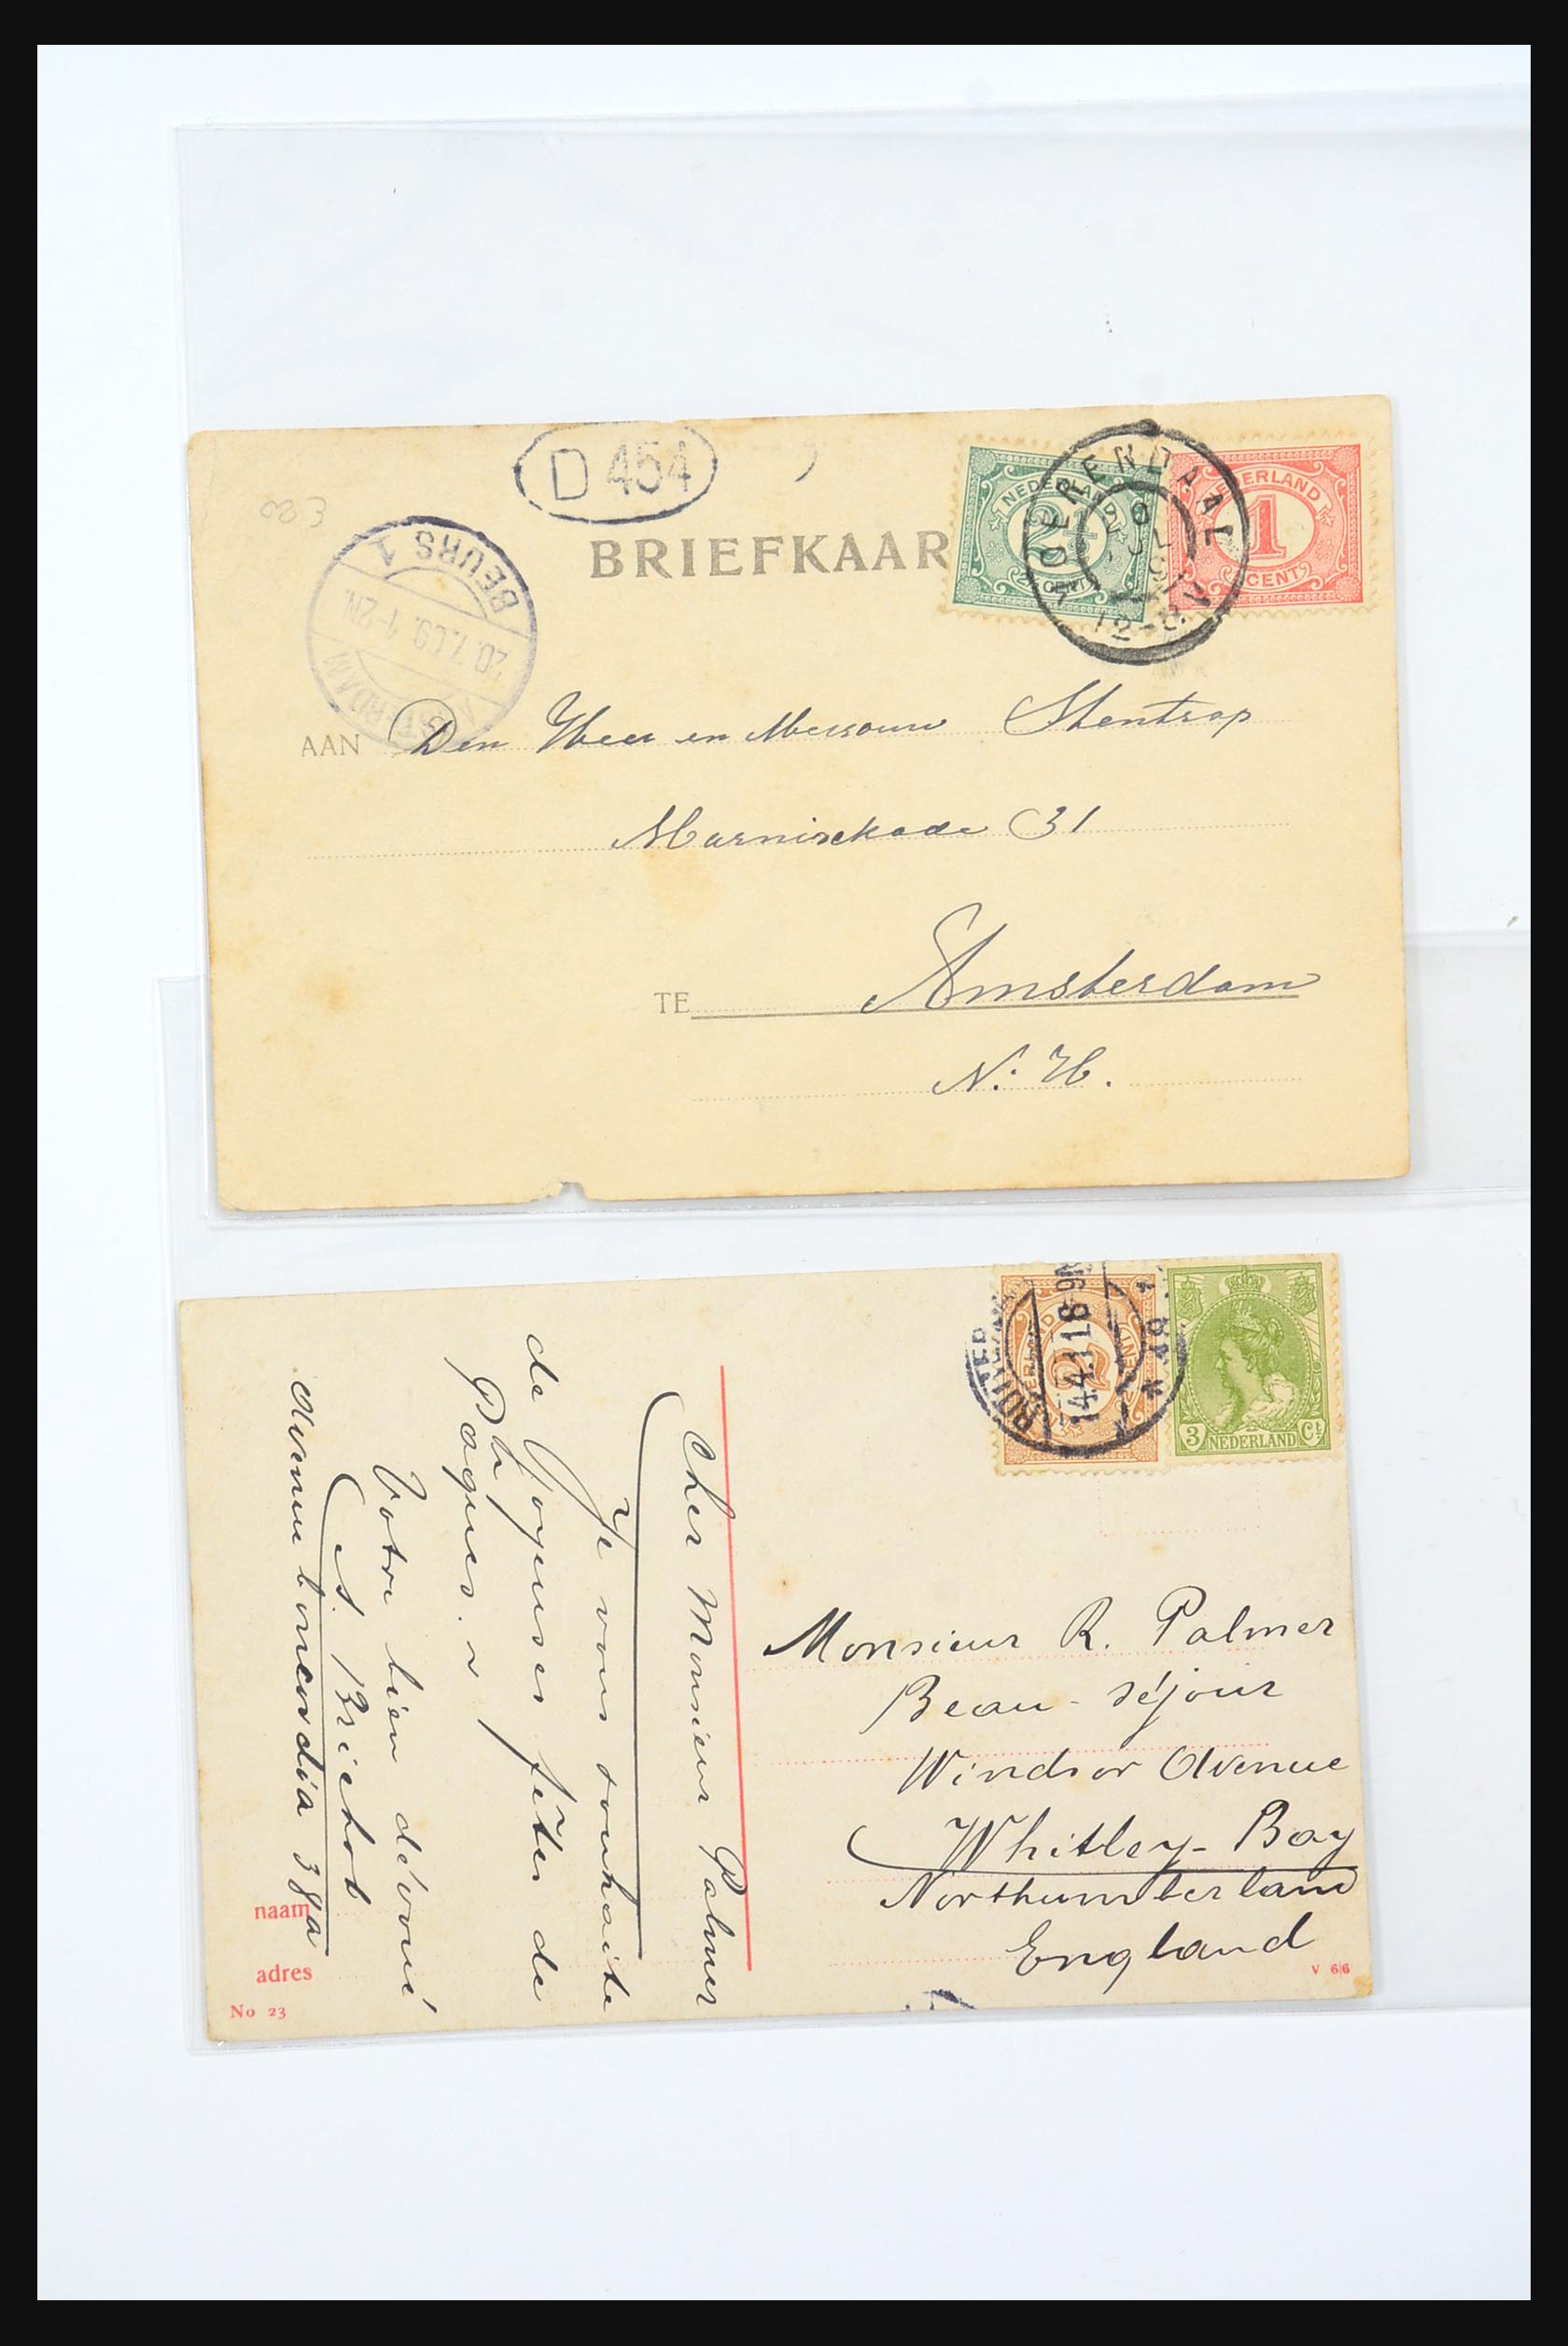 D 454
BRIEFKAAR
NEDERLAND
2½
CENT
NEDERLAND
1
CENT
BEURS 1
20.7.09. 1-2N.
AMSTERDAM
12-
AAN Den Heer en Mevrouw Stentrop
Marnixkade 31
TE Amsterdam
N. H.
NEDERLAND
2
CENT
3 NEDERLAND Ct
ROTTERDAM
14.4.11 8-9N
Cher Monsieur Palmer
Je vous souhaite
de Joyeuses fêtes de
Pâques.
Votre bien dévoué
S. Brichot
Avenue Concordia 38a
Monsieur R. Palmer
Beau-séjour
Windsor Avenue
Whitley-Bay
Northumberland
England
naam
adres
No 23
V 66